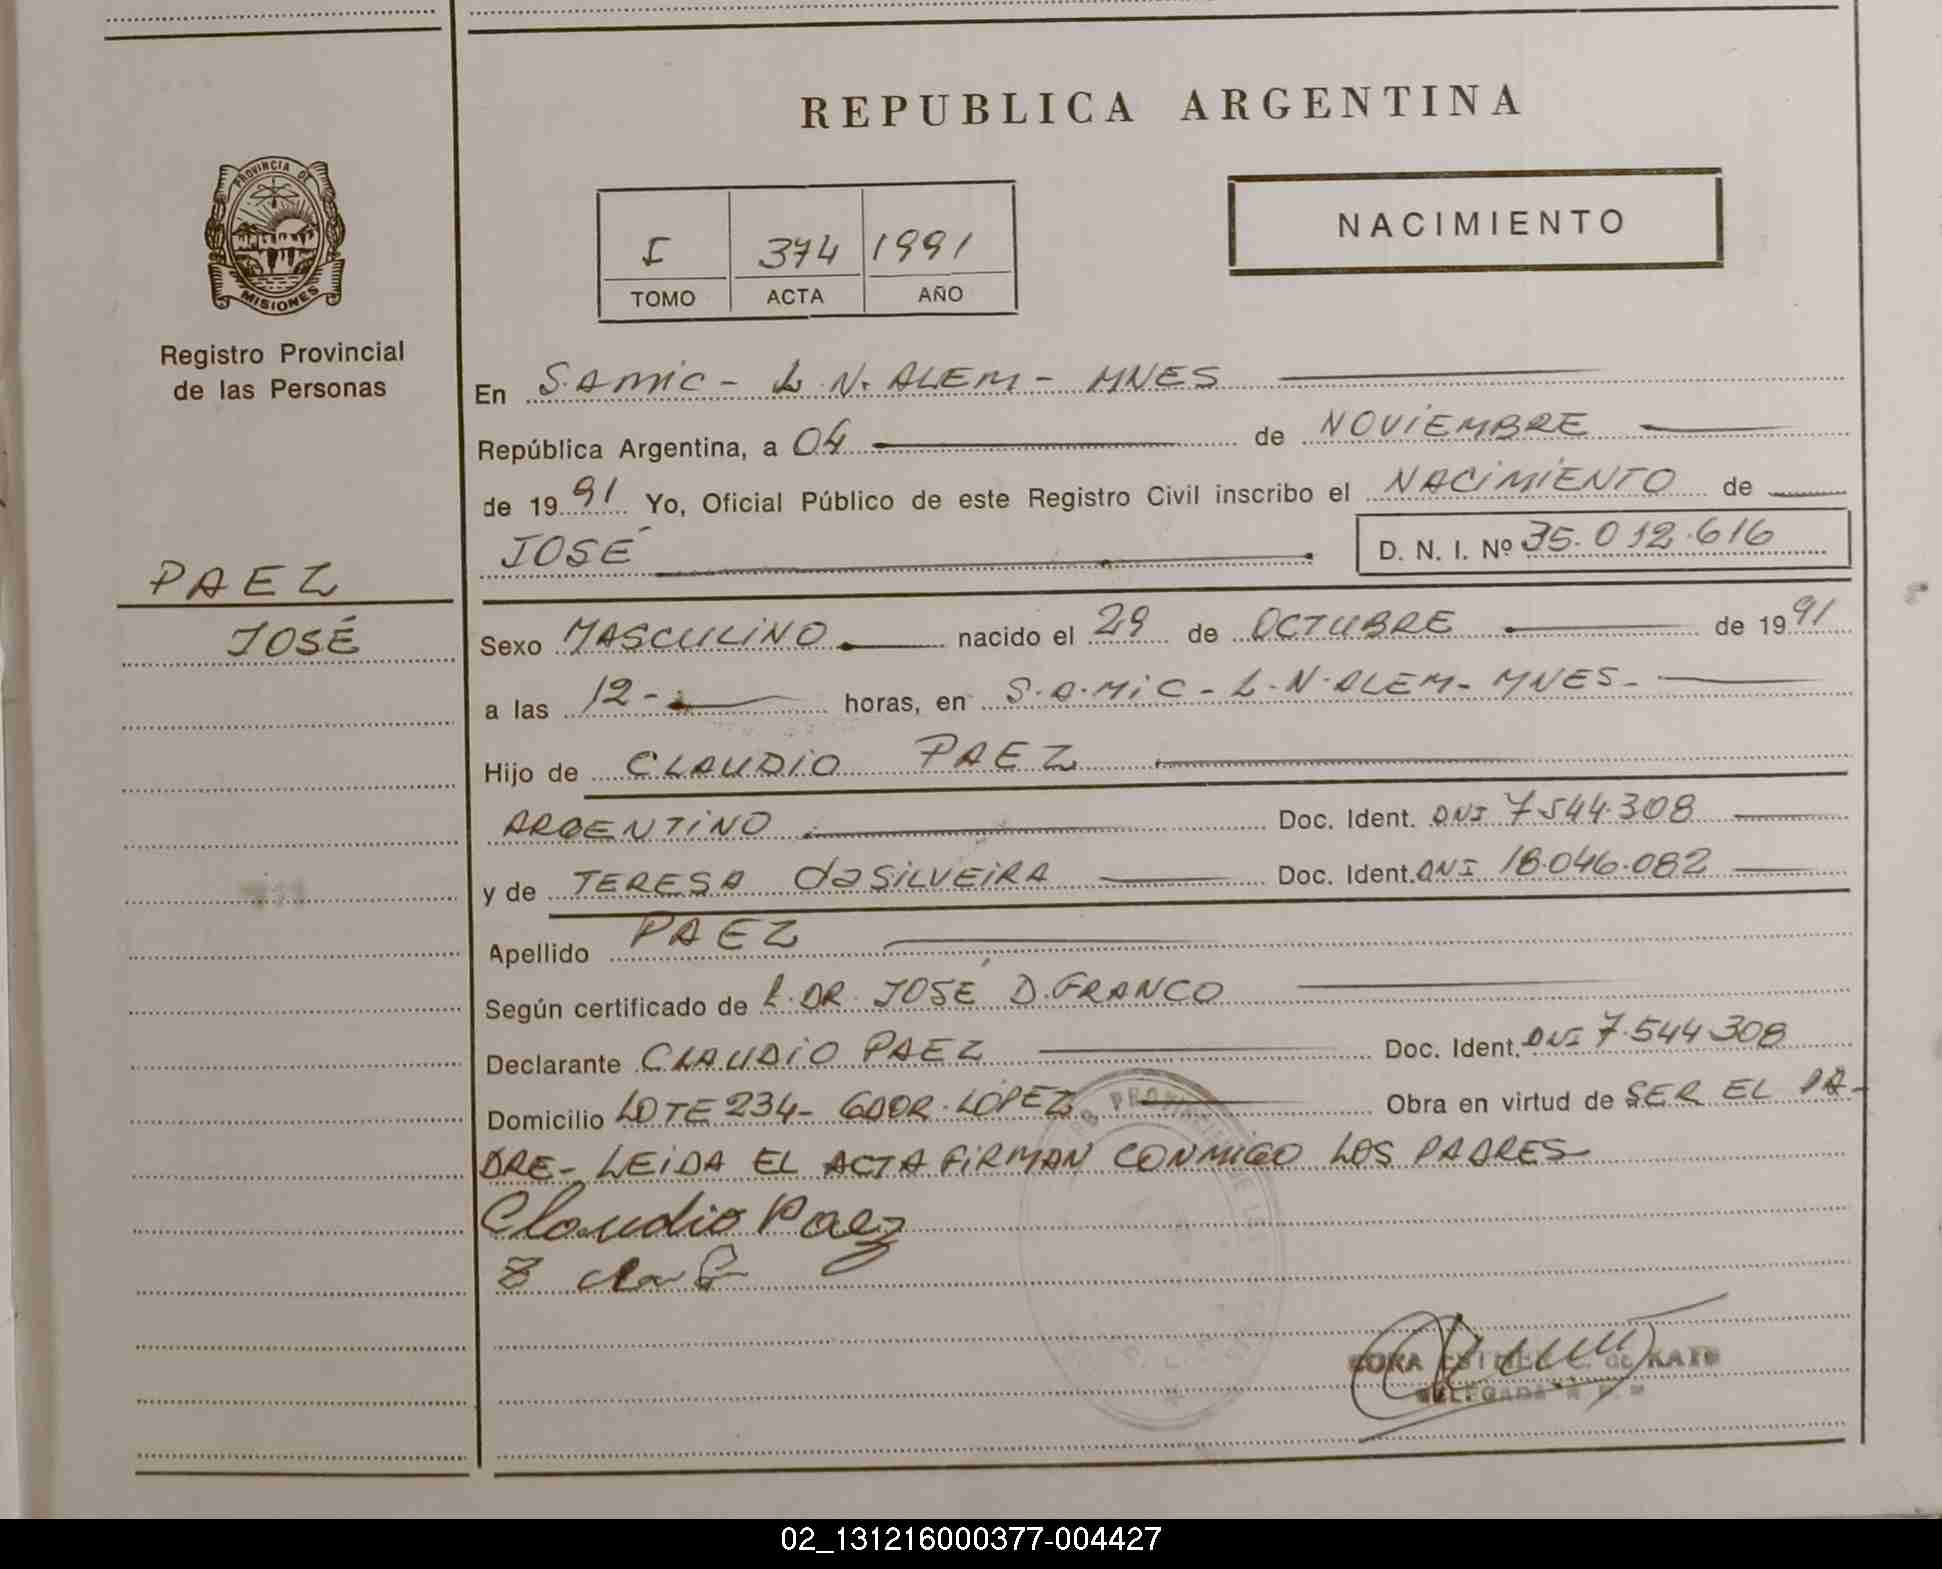 REPUBLICA ARGENTINA
PROVINCIA DE
MISIONES
Registro Provincial
de las Personas
I 374 1991
TOMO ACTA AÑO
NACIMIENTO
En S.A.MiC - L.N. ALEM - MNES
República Argentina, a 04 de NOViEMBRE
de 1991 Yo, Oficial Público de este Registro Civil inscribo el NACiMiENTO de
JOSÉ D. N. I. Nº 35.012.616
PAEZ
JOSÉ
Sexo MASCULiNO nacido el 29 de OCTUBRE de 1991
a las 12- horas, en S.A.MiC - L.N.ALEM - MNES-
Hijo de CLAUDiO PAEZ
ARGENTiNO Doc. Ident. DNI 7.544.308
y de TERESA daSiLVEiRA Doc. Ident. DNI 18.046.082
Apellido PAEZ
Según certificado de L.DR. JOSÉ D.FRANCO
Declarante CLAUDiO PAEZ Doc. Ident. DNI 7.544.308
Domicilio LOTE 234- GDOR. LÓPEZ Obra en virtud de SER EL PA-
DRE- LEiDA EL ACTA FiRMAN CONMiGO LOS PADRES
Claudio Paez
DELEGADA
02_131216000377-004427